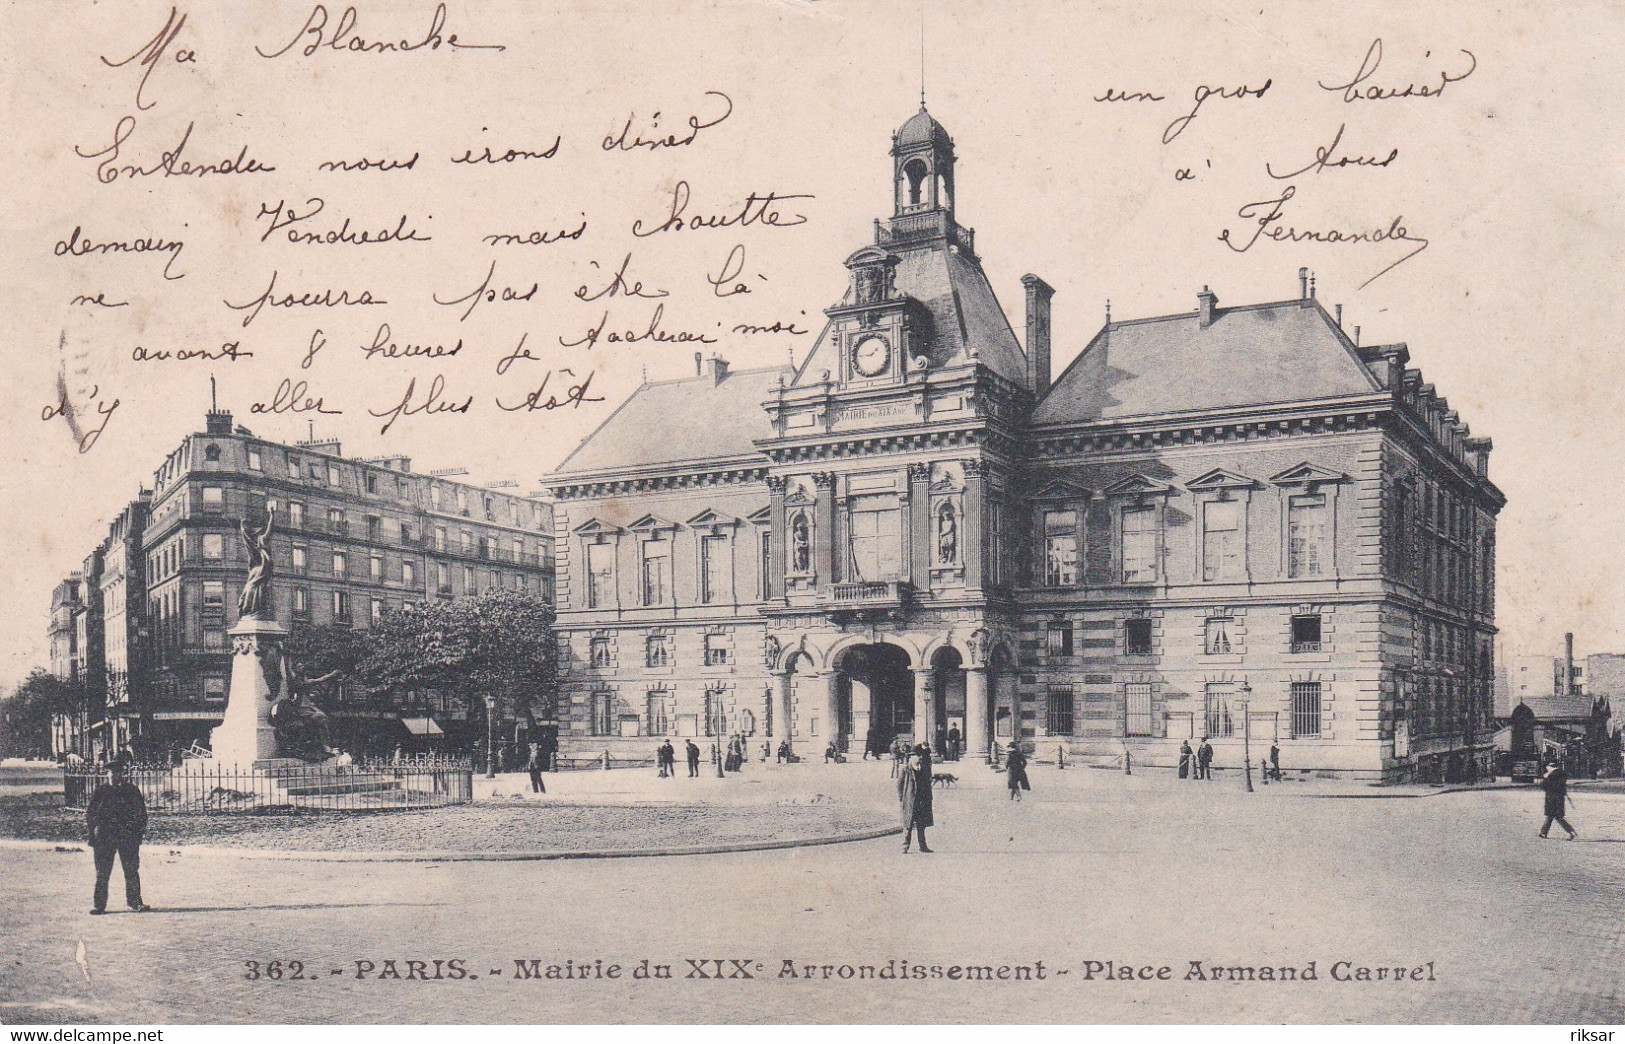 Ma Blanche
Entendu nous irons diner
demain Vendredi mais choutte
ne pourra pas être là
avant 8 heures je tacherai moi
d'y aller plus tôt
un gros baiser
à tous
Fernande
MAIRIE DU XIX ARRt
362. - PARIS. - Mairie du XIXe Arrondissement - Place Armand Carrel
riksar